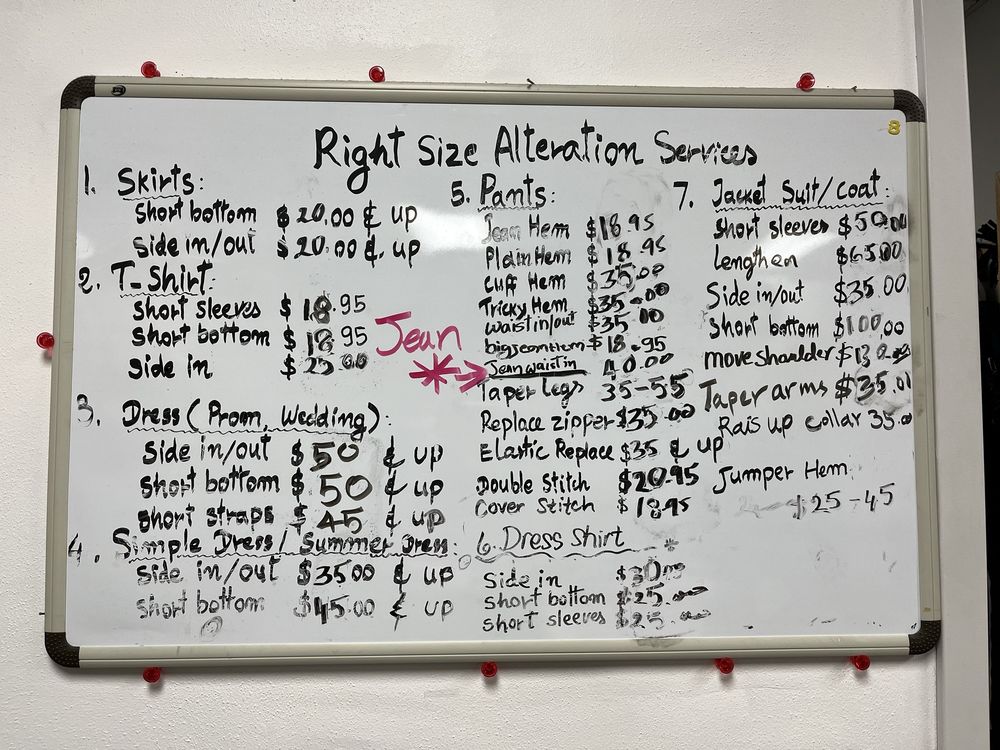 Right Size Alteration Services
1. Skirts:
Short bottom $20.00 & up
Side in/out $20.00 & up
2. T-Shirt:
Short sleeves $18.95
Short bottom $18.95
Side in $25.00
3. Dress (Prom, Wedding):
Side in/out $50 & up
Short bottom $50 & up
Short straps $45 & up
4. Simple Dress / Summer Dress:
Side in/out $35.00 & up
Short bottom $45.00 & up
Jean
5. Pants:
Jean Hem $18.95
Plain Hem $18.95
Cuff Hem $35.00
Tricky Hem $35.00
waist in/out $35.00
big jean Hem $18.95
Jean waist in 40.00
Taper Legs 35-55
Replace zipper $35.00
Elastic Replace $35 & up
Double Stitch $20.95
Cover Stitch $18.95
6. Dress Shirt
Side in $30.00
Short bottom $25.00
Short sleeves $25.00
8
7. Jacket Suit/Coat:
Short sleeves $50.00
Lengthen $65.00
Side in/out $35.00
Short bottom $100.00
move shoulder
Taper arms $35.00
Rais up collar 35.00
Jumper Hem:
$25-45